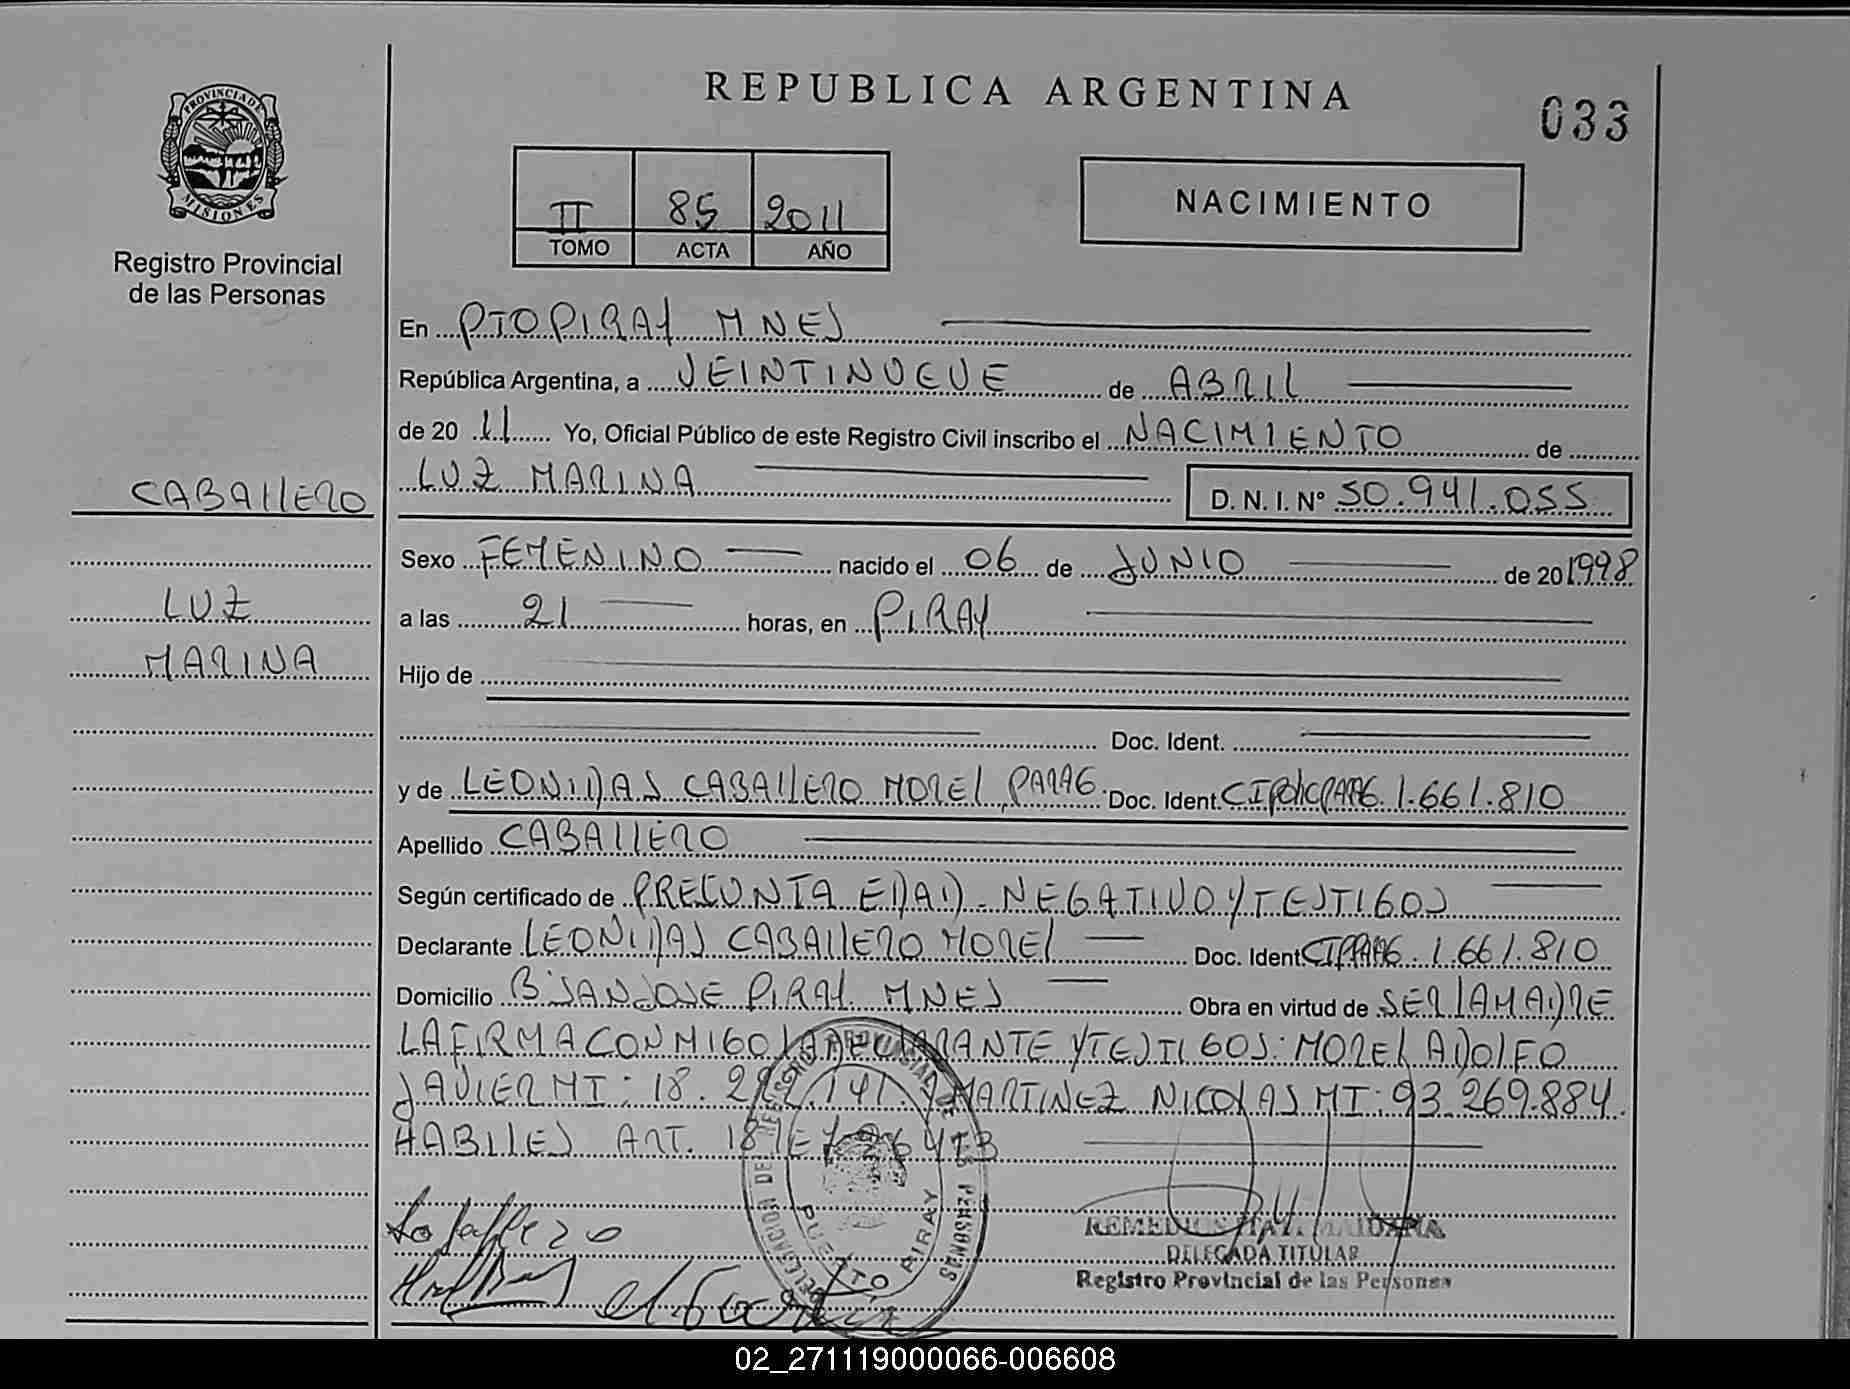 REPUBLICA ARGENTINA
033
PROVINCIA DE
MISIONES
Registro Provincial
de las Personas
II 85 2011
TOMO ACTA AÑO
NACIMIENTO
En PTO PIRAY MNES
República Argentina, a VEINTINUEVE de ABRIL
de 20 11 Yo, Oficial Público de este Registro Civil inscribo el NACIMIENTO de
LUZ MARINA D. N. I. Nº 50.941.055
CABALLERO
LUZ
MARINA
Sexo FEMENINO nacido el 06 de JUNIO de 20 1998
a las 21 horas, en PIRAY
Hijo de
Doc. Ident.
y de LEONIDAS CABALLERO MOREL PARAG. Doc. Ident. CI POLIC PARAG 1.661.810
Apellido CABALLERO
Según certificado de PRESUNTA EDAD - NEGATIVO Y TESTIGOS
Declarante LEONIDAS CABALLERO MOREL Doc. Ident 1.661.810
Domicilio Bº SAN JOSE PIRAY MNES Obra en virtud de SER LA MADRE
LA FIRMA CONMIGO LA DECLARANTE Y TESTIGOS: MOREL ADOLFO
JAVIER MI: 18. 141. Y MARTINEZ NICOLAS MI: 93.269.884.
HABILES ART. 18
DELEGACION DE REGISTRO PROVINCIAL DE LAS PERSONAS
PUERTO PIRAY
REMEDIOS MAIDANA
DELEGADA TITULAR
Registro Provincial de las Personas
02_271119000066-006608